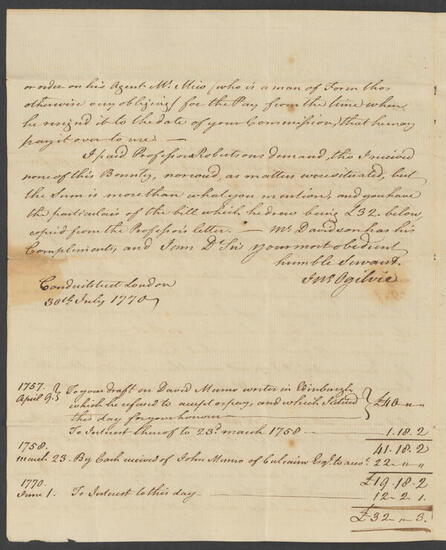 or order on his Agent Mr. Mico (who is a man of Form tho
otherwise very obliging) for the Pay from the time when
he resign'd it to the date of your Commission, that he may
pay it over to me —
I paid Professor Robertsons demand, tho I received
none of this Bounty, nor cou'd, as matters were situated, but
the Sum is more than what you mention, and you have
the particulars of the bill which he drew being £32 below
copied from the Professors letter. — Mr. Davidson has his
Compliments, and I am Dr. Sir your most obedient
humble Servant.
Jno. Ogilvie
Conduit street London
30th. July 1770
1757.
April 9. To your draft on David Munro writer in Edinburgh
which he refused to accept or pay, and which I retired
this day for your honour — £40 „ „
To Interest thereof to 23d. march 1758 — 1. 18. 2
41. 18. 2
1758.
march 23. By Cash received of John Munro of Culcairn Esqr. to acct. 22 „ „
£19. 18. 2
1770.
June 1. To Interest to this day — 12. 2. 1.
£32 „ 3.